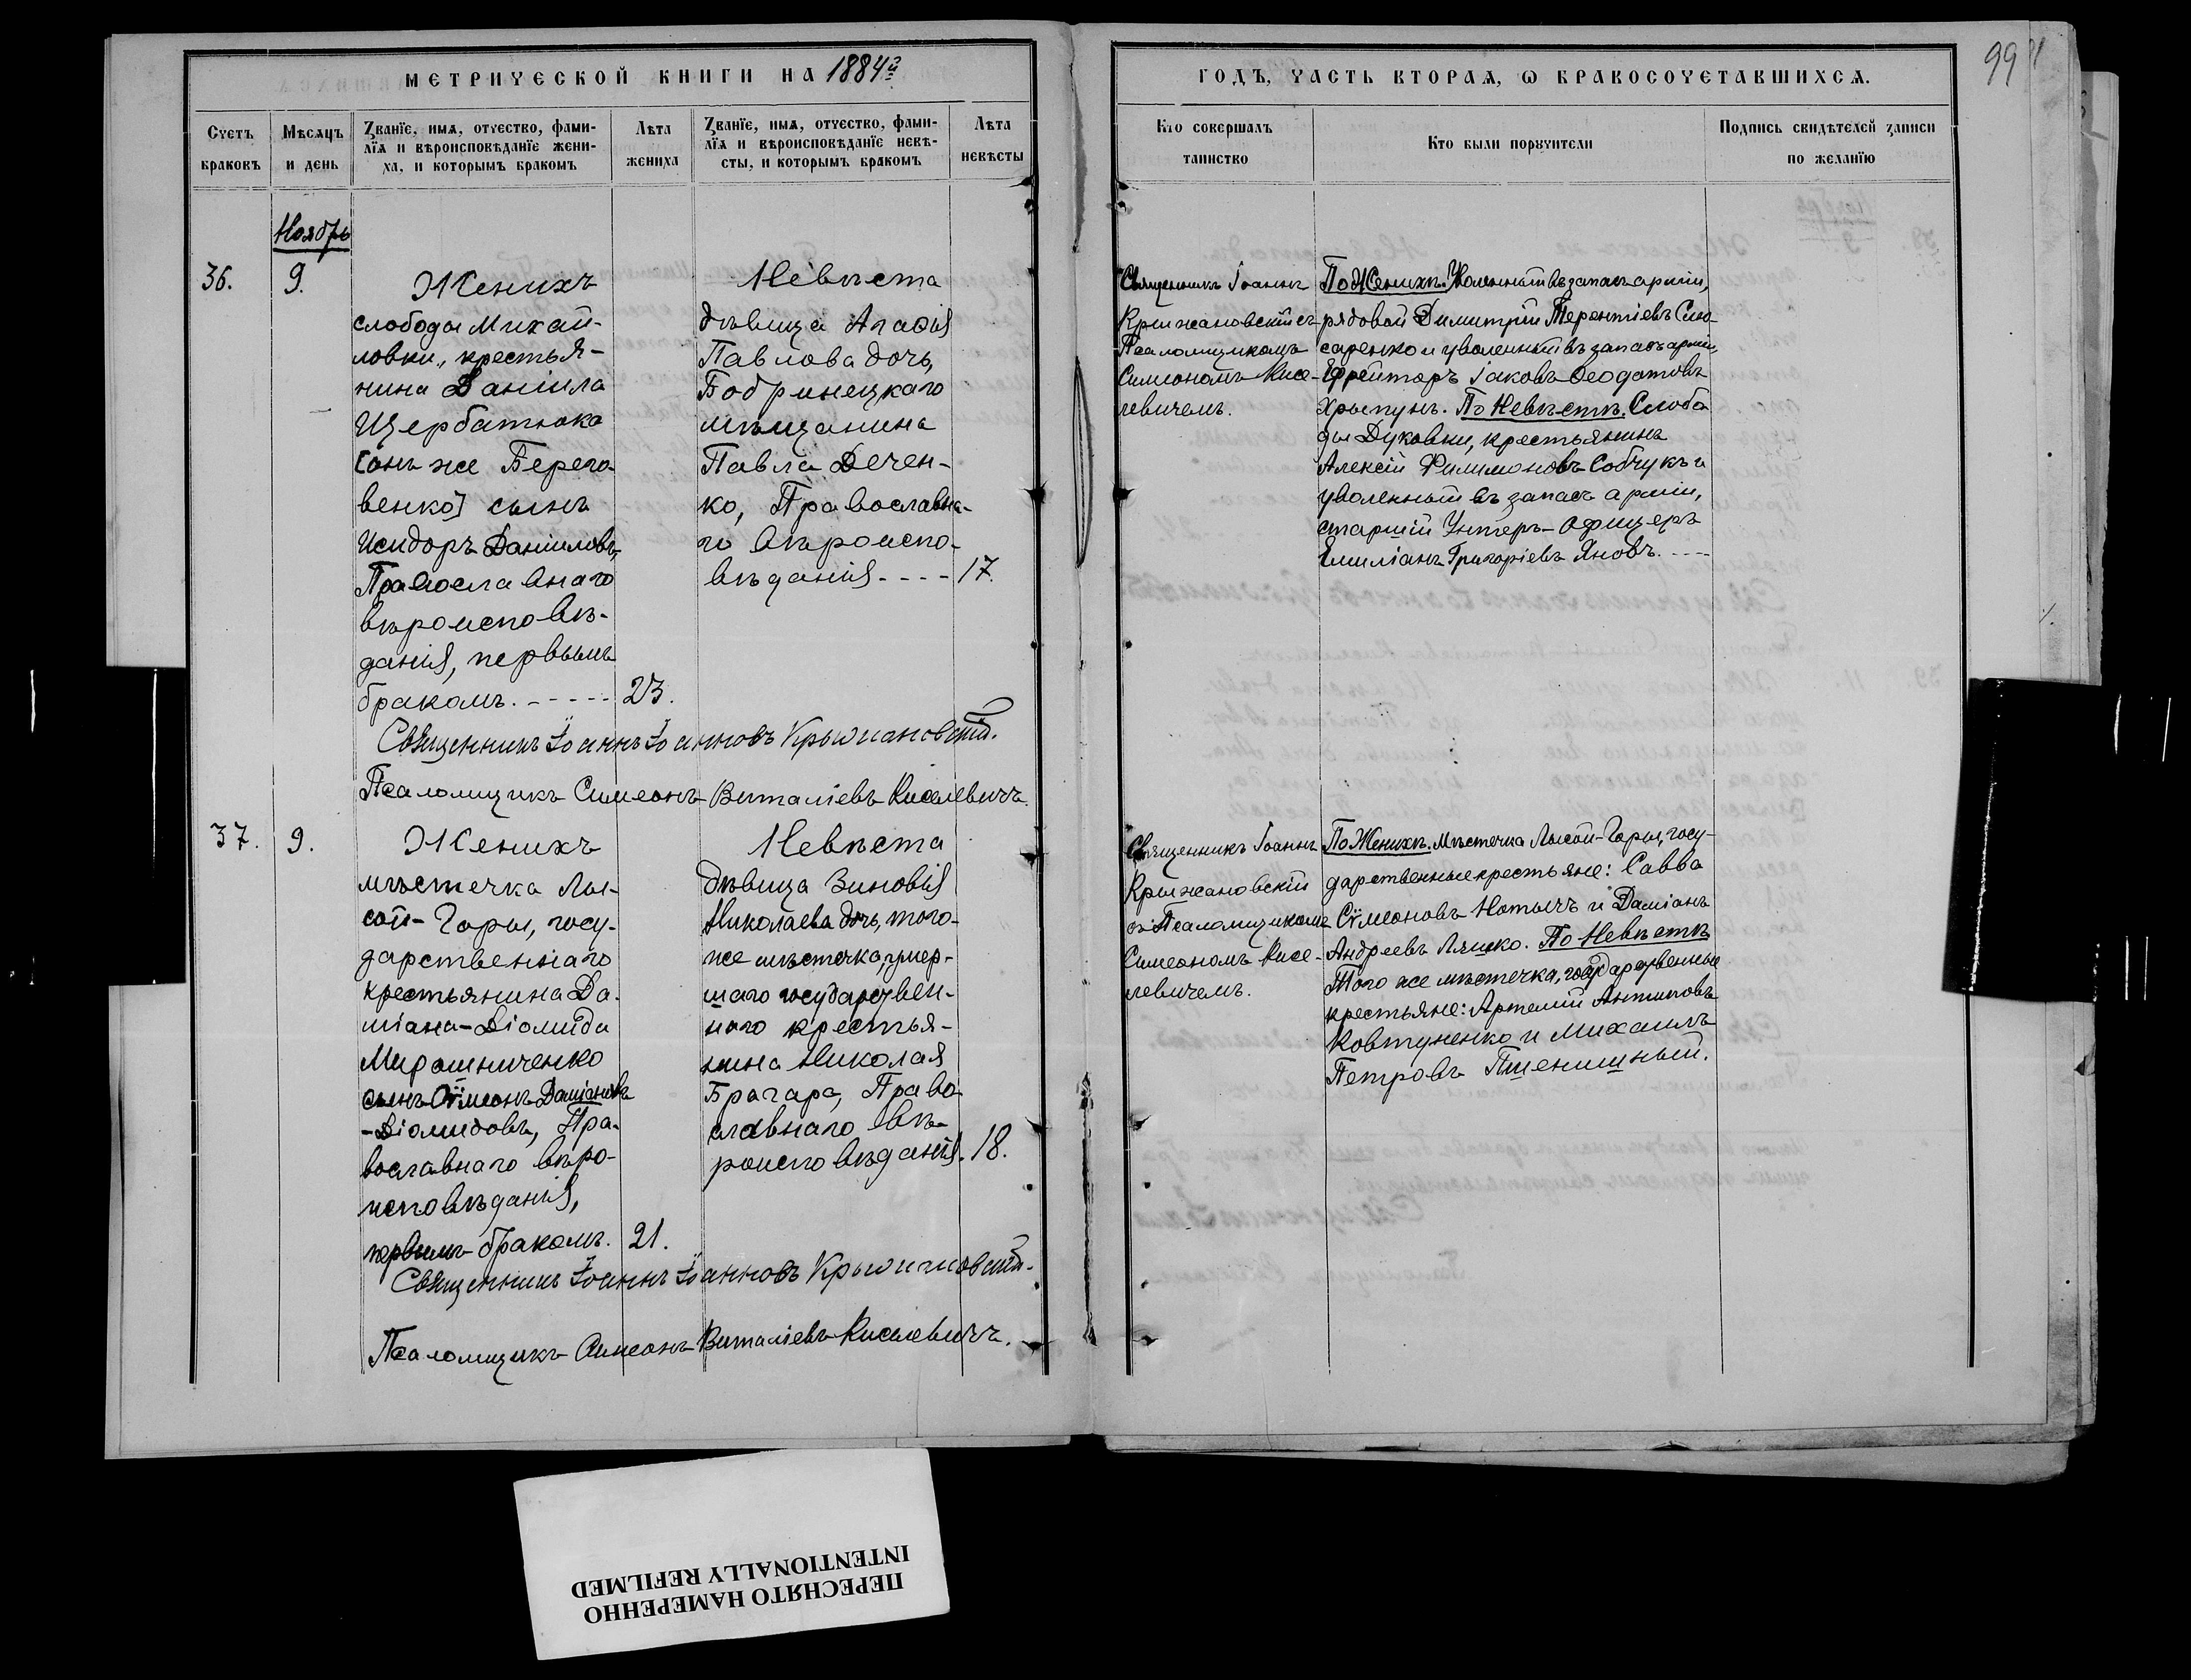 МЕТРИЧЕСКОЙ КНИГИ НА 1884й
Счетъ браковъ
Мѣсяцъ и день
Званїе, имя, отчество, фами-
лїя и вѣроисповѣданїе жени-
ха, и которымъ бракомъ
Лѣта жениха
Званїе, имя, отчество, фами-
лїя и вѣроисповѣданїе невѣ-
сты, и которымъ бракомъ
Лѣта невѣсты
Ноябрь
36.
9.
Женихъ
слободы Михай-
ловки, крестья-
нина Даніила
Щербатюка
[онъ же Берего-
венко] сынъ
Исидоръ Даніиловъ,
Православнаго
вѣроисповѣ-
данія, первымъ
бракомъ. - - - - - 23.
Невѣста
дѣвица Агаѳія
Павлова дочь,
Бобринецкаго
мѣщанина
Павла Дечен-
ко, Православна-
го вѣроиспо-
вѣданія - - - - 17.
Священникъ Іоаннъ Іоанновъ Крыжановскій.
Псаломщикъ Симеонъ Виталіевъ Киселевичъ.
37.
9.
Женихъ
мѣстечка Лы-
сой-Горы, госу-
дарственнаго
крестьянина Да-
міана-Діомида
Мирошниченко
сынъ Сѵмеонъ Даміановъ
-Діомидовъ, Пра-
вославнаго вѣро-
исповѣданія,
первымъ бракомъ. 21.
Невѣста
дѣвица Зиновія
Николаева дочь, того-
же мѣстечка, умер-
шаго государствен-
наго крестья-
нина Николая
Брагара, Право-
славнаго вѣ-
роисповѣданія. 18.
Священникъ Іоаннъ Іоанновъ Крыжановскій.
Псаломщикъ Симеонъ Виталіевъ Киселевичъ.
ГОДЪ, ЧАСТЬ ВТОРАЯ, Ѡ БРАКОСОЧЕТАВШИХСЯ.
99
Кто совершалъ
таинство
Кто были поручители
Подпись свидѣтелей записи
по желанїю
Священникъ Іоаннъ
Крыжановскій съ
Псаломщикомъ
Симеономъ Кисе-
левичемъ.
По Женихѣ. Уволенный въ запасъ арміи,
рядовой Димитрій Терентіевъ Слю-
саренко и уволенный въ запасъ арміи,
Ефрейторъ Іаковъ Ѳеодотовъ
Хрыпунъ. По Невѣстѣ. Слобо-
ды Дуковки, крестьянинъ
Алексій Филимоновъ Собчукъ и
уволенный въ запасъ арміи,
старшій Унтеръ-Офицеръ
Емиліанъ Григоріевъ Яновъ. - - - -
Священникъ Іоаннъ
Крыжановскій
съ Псаломщикомъ
Симеономъ Кисе-
левичемъ.
По Женихѣ. Мѣстечка Лысой-Горы, госу-
дарственные крестьяне: Савва
Сѵмеоновъ Нотычъ и Даміанъ
Андреевъ Ляшко. По Невѣстѣ
Того же мѣстечка, государственные
крестьяне: Артемій Антиповъ
Ковтуненко и Михаилъ
Петровъ Пшенишный.
ПЕРЕСНЯТО НАМЕРЕННО
INTENTIONALLY REFILMED